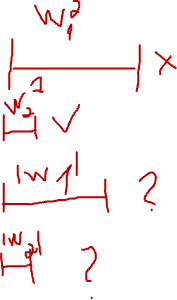 w₁²
x
w₂²
✓
|w₁|
?
|w₂|
?